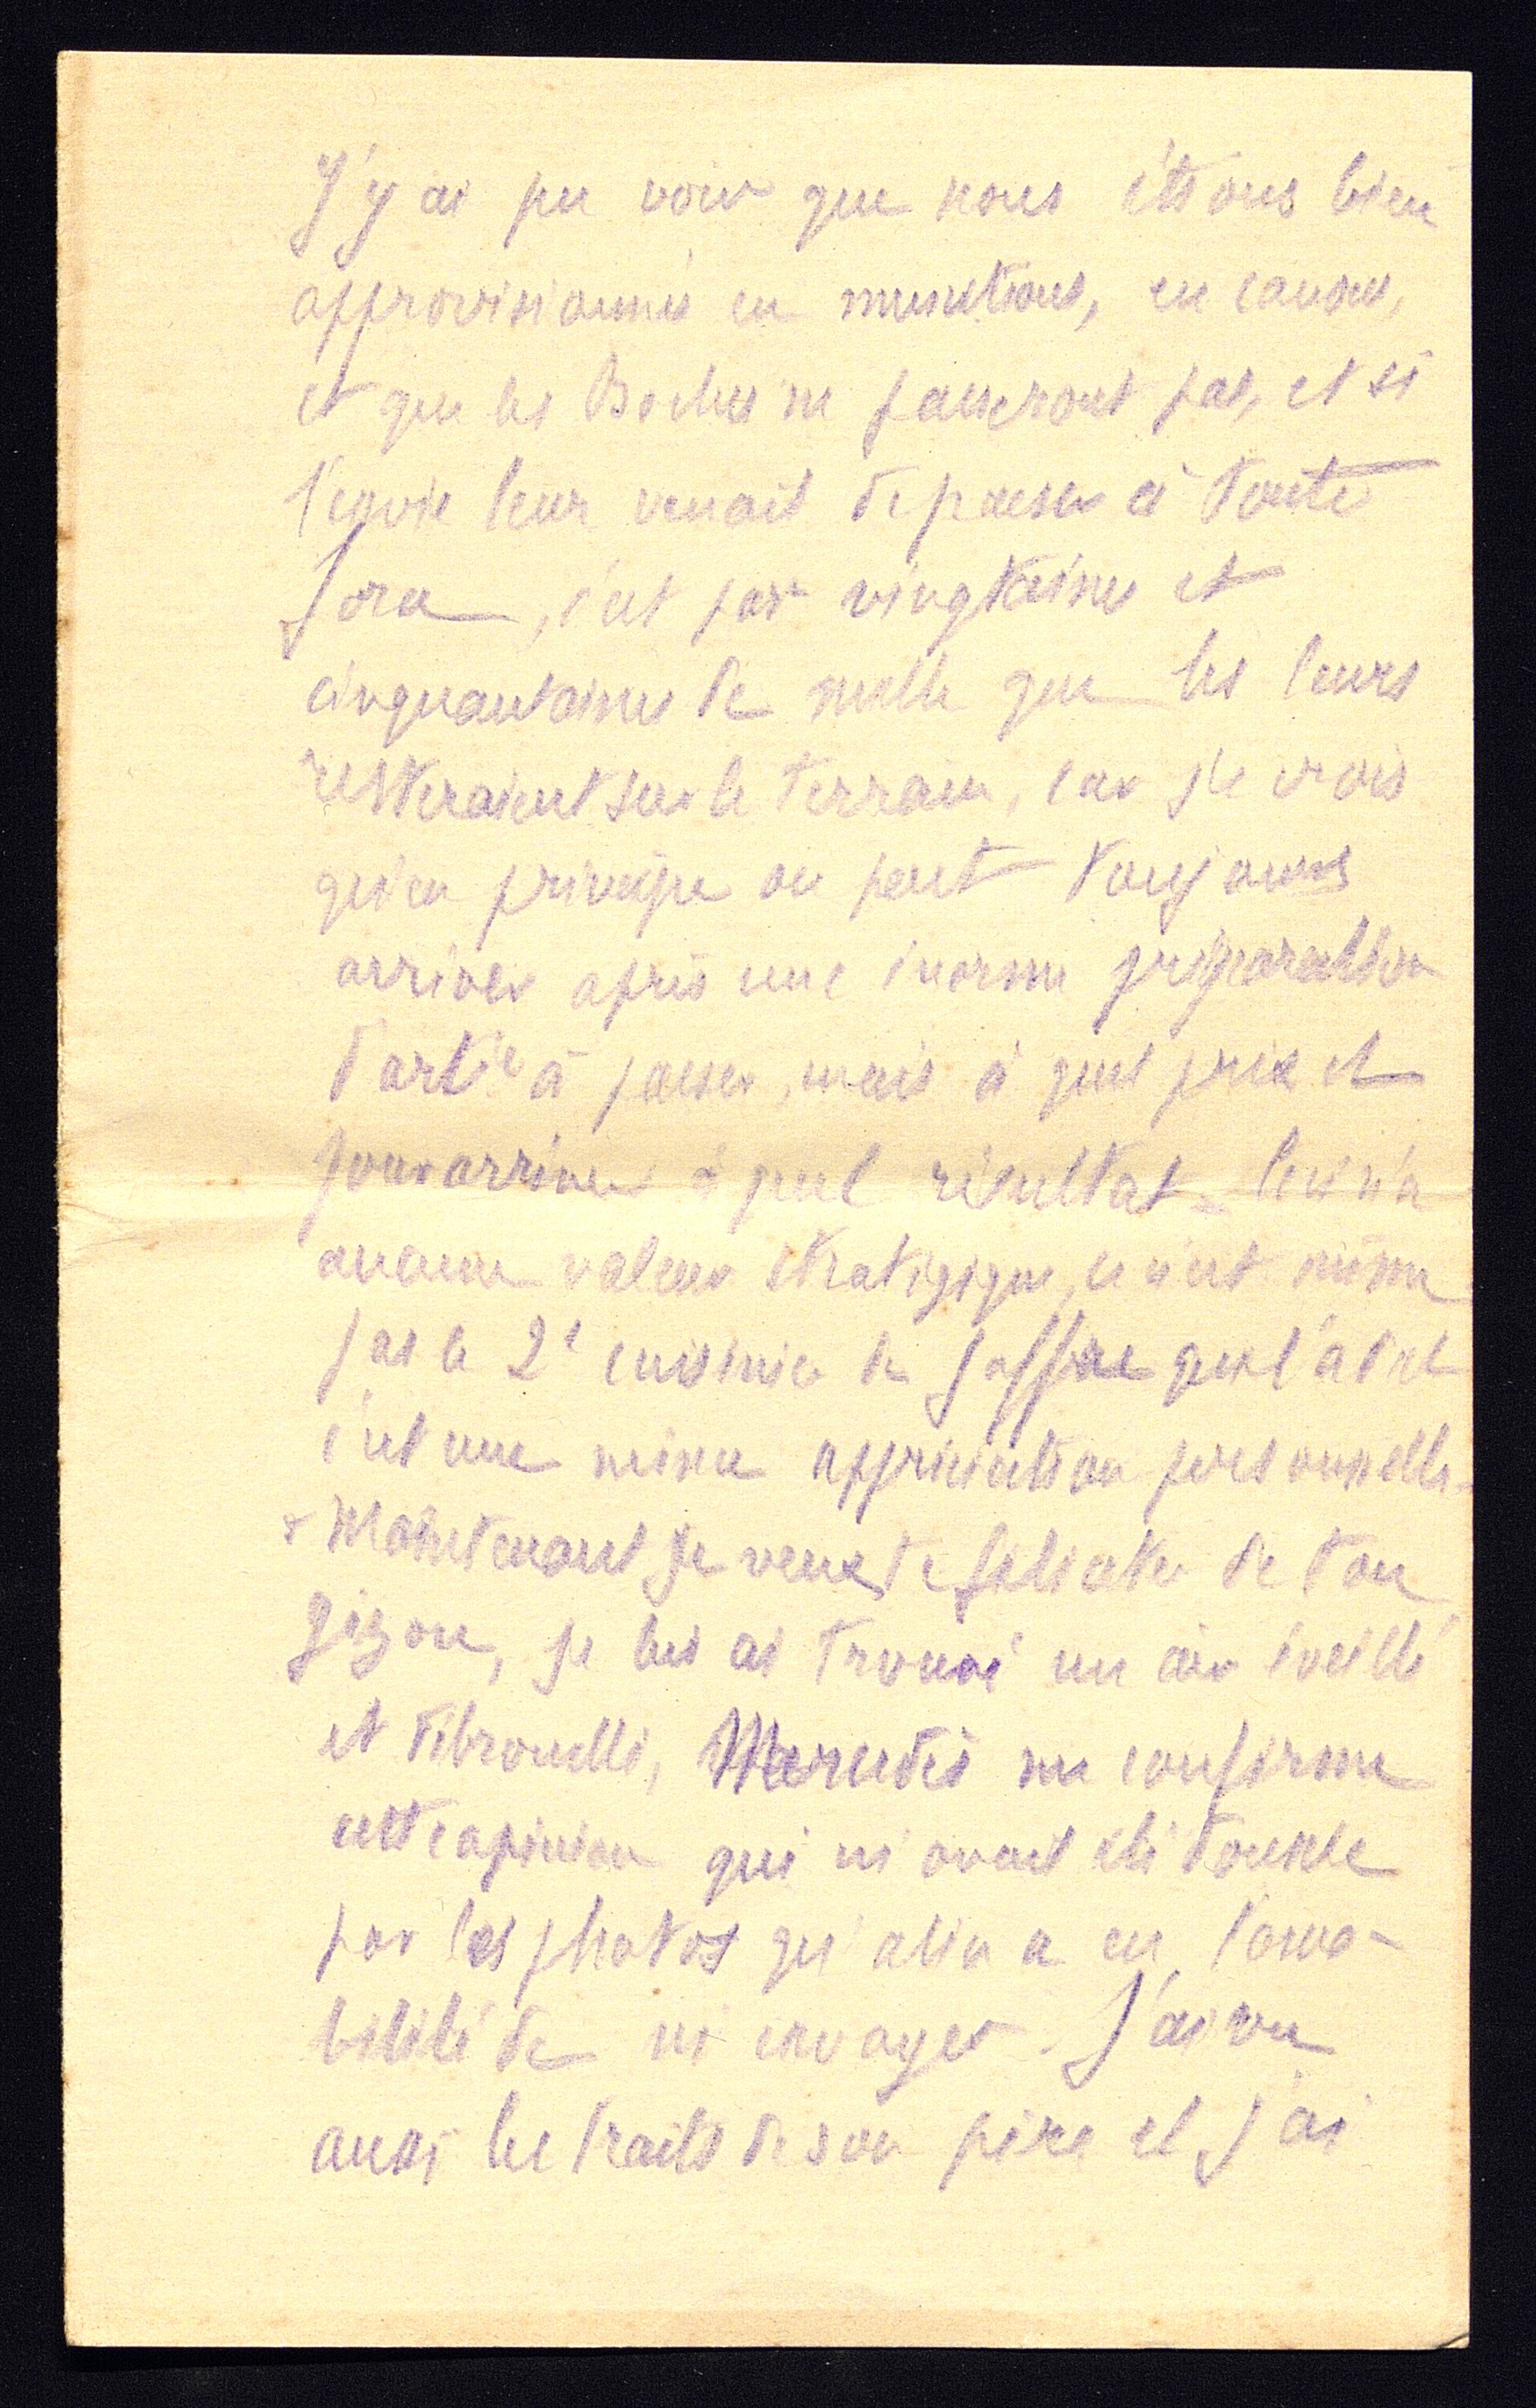 J'y ai pu voir que nous étions bien
approvisionnés en munitions, en canons,
et que les Boches ne passeront pas, et si
l'envie leur venait de passer à toute
force, c'est par vingtaines et
cinquantaines de mille que les leurs
resteraient sur le terrain, car je crois
qu'en principe on peut toujours
arriver après une énorme préparation
d'artie à passer, mais à quel prix et
pour arriver à quel résultat. Ceci n'a
aucune valeur stratégique, ce n'est même
pas le 2e cuisinier de Joffre qui l'a dit
c'est une mienne appréciation personnelle.
Maintenant je veux te féliciter de ton
gizon, je lui ai trouvé un air éveillé
et débrouillé, Mercédès me confirme
cette opinion qui m'avait été donnée
par les photos qu'elle a eu l'ama-
bilité de m'envoyer. J'ai vu
aussi les traits de son père et j'ai